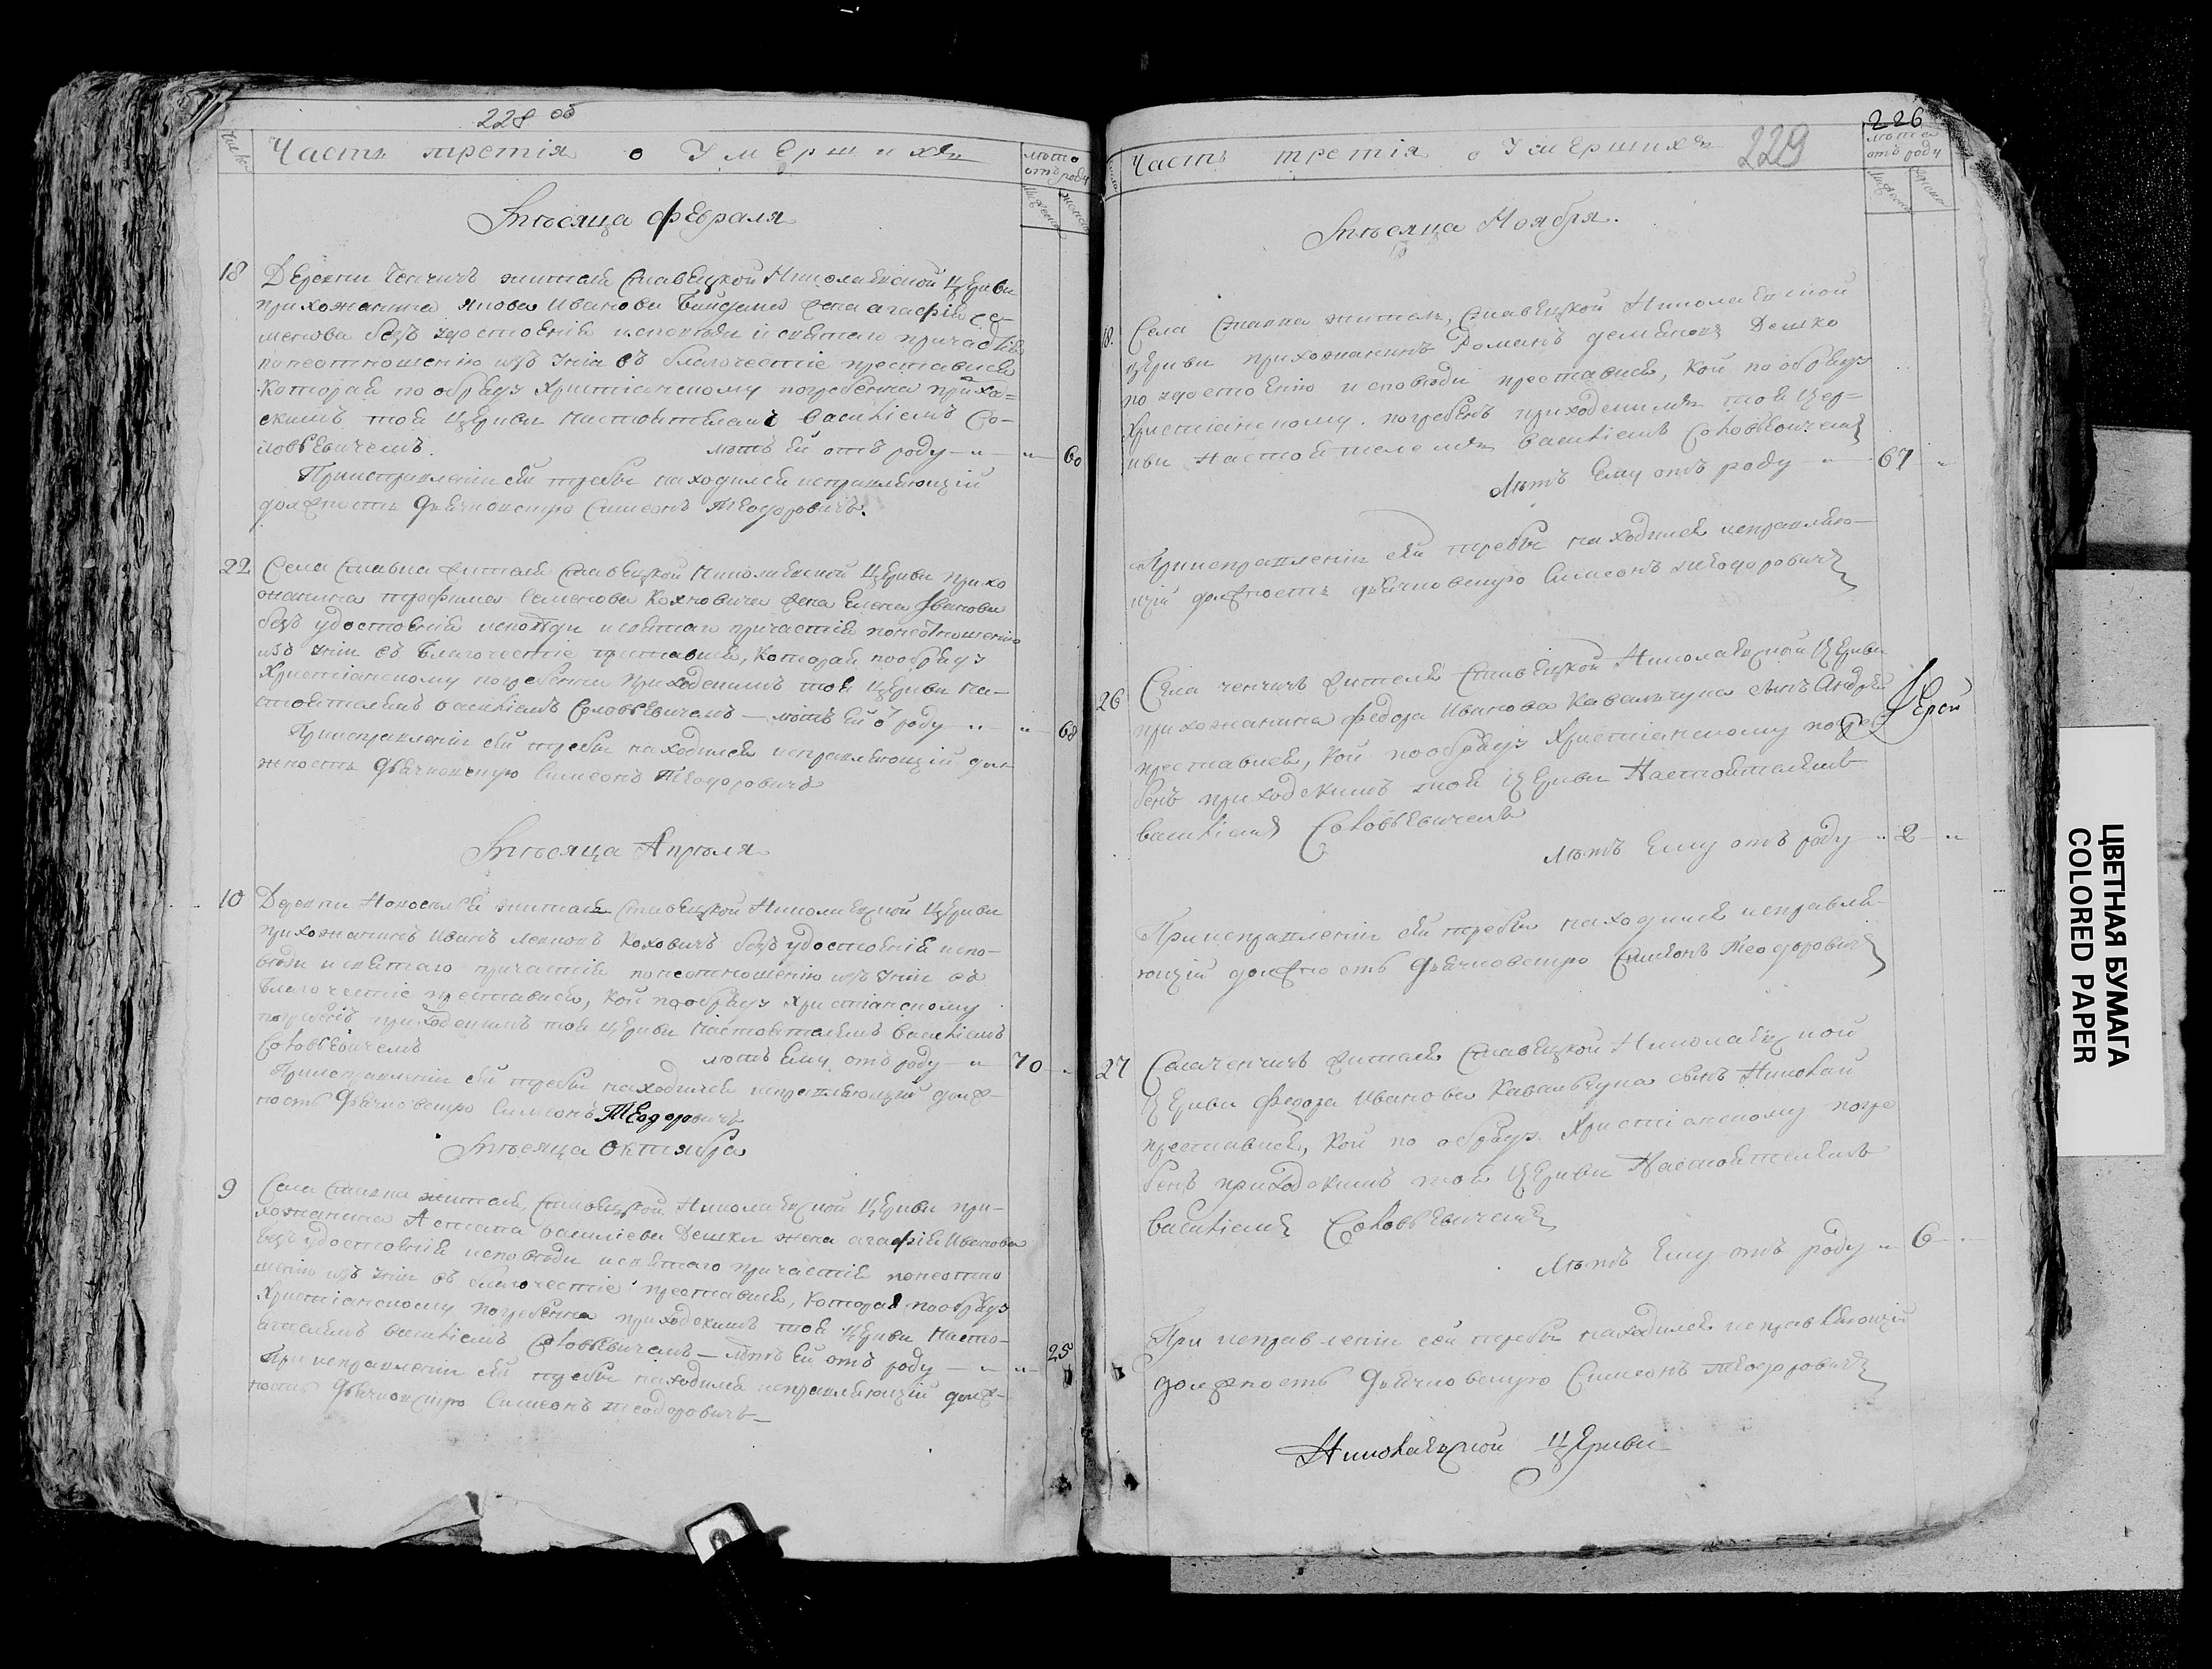 228 об
Часть третія о Умершихъ
лѣта
отъ роду
Мѣсяца Февраля
18 Деревни Ченчичъ жителя Ставецкой Николаевской Церкви
прихожанина Якова Иванова жена агафія се-
менова безъ удостоенія исповѣди и святаго причастія
по неотношенію изъ Уніи въ благочестіе преставися
которая по обряду Христіанскому погребенна приход-
скимъ тоя Церкви Настоятелемъ Василіемъ Со-
ловьевичемъ. лѣтъ ей отъ роду — 60
При исправленіи сей требы находился исправляющій
должность дьячковскую Симеонъ Теодоровичъ.
22 Села Ставка жителя Ставецкой Николаевской Церкви прихо
жанина трофима Семенова Кохновича жена Елена Иванова
безъ удостоенія исповѣди и святаго причастія по неотношенію
изъ Уніи въ Благочестіе преставися, которая по обряду
Христіанскому погребенна Приходскимъ тоя Церкви На-
стоятелемъ Василіемъ Соловьевичемъ — лѣтъ ей о роду 68
При исправленіи сей требы находился исправляющій дол
жность дьячковскую Симеонъ Теодоровичъ
Мѣсяца Апрѣля
10 Деревни жителя Ставецкой Николаевской Церкви
прихожанинъ Иванъ Коховичъ безъ удостоенія испо-
вѣди и святаго причастія по неотношенію изъ Уніи въ
благочестіе преставися, кой по обряду Христіанскому
погребенъ приходскимъ тоя Церкви Настоятелемъ Василіемъ
Соловьевичемъ лѣтъ ему отъ роду 70
При исправленіи сей требы находился исправляющій долж-
ность дьячковскую Симеонъ Теодоровичъ
Мѣсяца Октября
9 Села Ставка жителя, Ставецкой Николаевской Церкви при-
хожанина Василіева Дешки жена агафія Иванова
безъ удостоенія исповѣди и святаго причастія по неотно
шенію изъ Уніи въ благочестіе преставися, которая по обряду
Христіанскому погребенна приходскимъ тоя Церкви Насто-
ятелемъ Василіемъ Соловьевичемъ — лѣтъ ей отъ роду — 25
При исправленіи сей требы находился исправляющій долж-
ность дьячковскую Симеонъ Теодоровичъ —
226
229
Часть третія о Умершихъ
лѣта
отъ роду
Мѣсяца Ноября.
18. Села Ставка житель, Ставецкой Николаевской
церкви прихожанинъ Романъ Демяновъ Дешко
по удостоенію исповѣди преставися, кой по обряду
Христіанскому погребенъ приходскимъ тоя Цер-
кви Настоятелемъ Василіемъ Соловьевичемъ
Лѣтъ Ему отъ роду — 67
При исправленіи сей требы находился исправляю-
щій должность дьячковскую Симеонъ Теодоровичъ
26 Села ченчичъ жителя Ставецкой Николаевской Церкви
прихожанина Федора Иванова Кавальчука сынъ Андрей
преставися, кой по обряду Христіанскому погре Іерей
бенъ приходскимъ тоя Церкви Настоятелемъ
Василіемъ Соловьевичемъ
Лѣтъ Ему отъ роду 2
При исправленіи сей требы находился исправля-
ющій должность дьячковскую Симеонъ Теодоровичъ
27 Села ченчичъ жителя Ставецкой Николаевской
Церкви Федора Иванова Кавальчука сынъ Николай
преставися, кой по обряду Христіанскому погре
бенъ приходскимъ тоя Церкви Настоятелемъ
Василіемъ Соловьевичемъ
Лѣтъ Ему отъ роду 6
При исправленіи сей требы находился исправляющій
должность дьячковскую Симеонъ Теодоровичъ
Николаевской Церкви
ЦВЕТНАЯ БУМАГА
COLORED PAPER